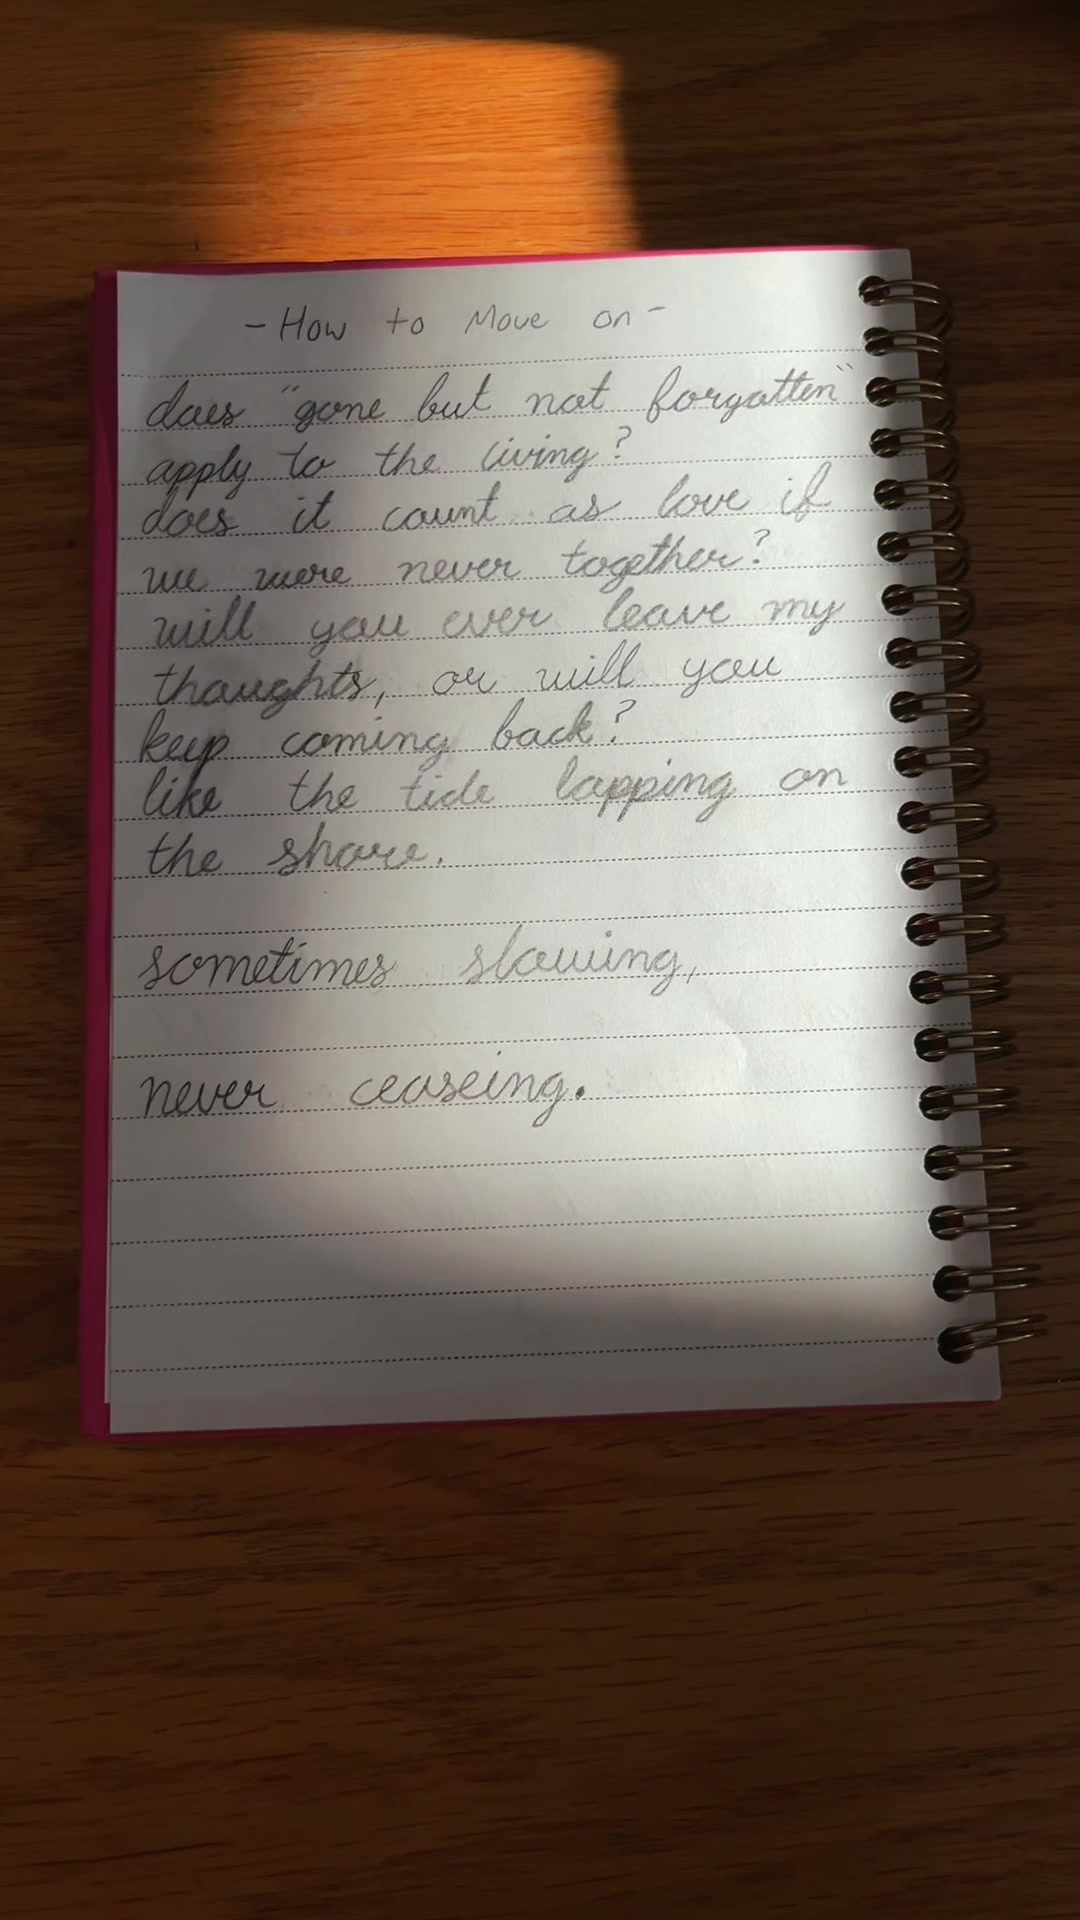 - How to Move on -
does "gone but not forgotten"
apply to the living?
does it count as love if
we were never together?
will you ever leave my
thoughts, or will you
keep coming back?
like the tide lapping on
the shore.
sometimes slowing,
never ceaseing.